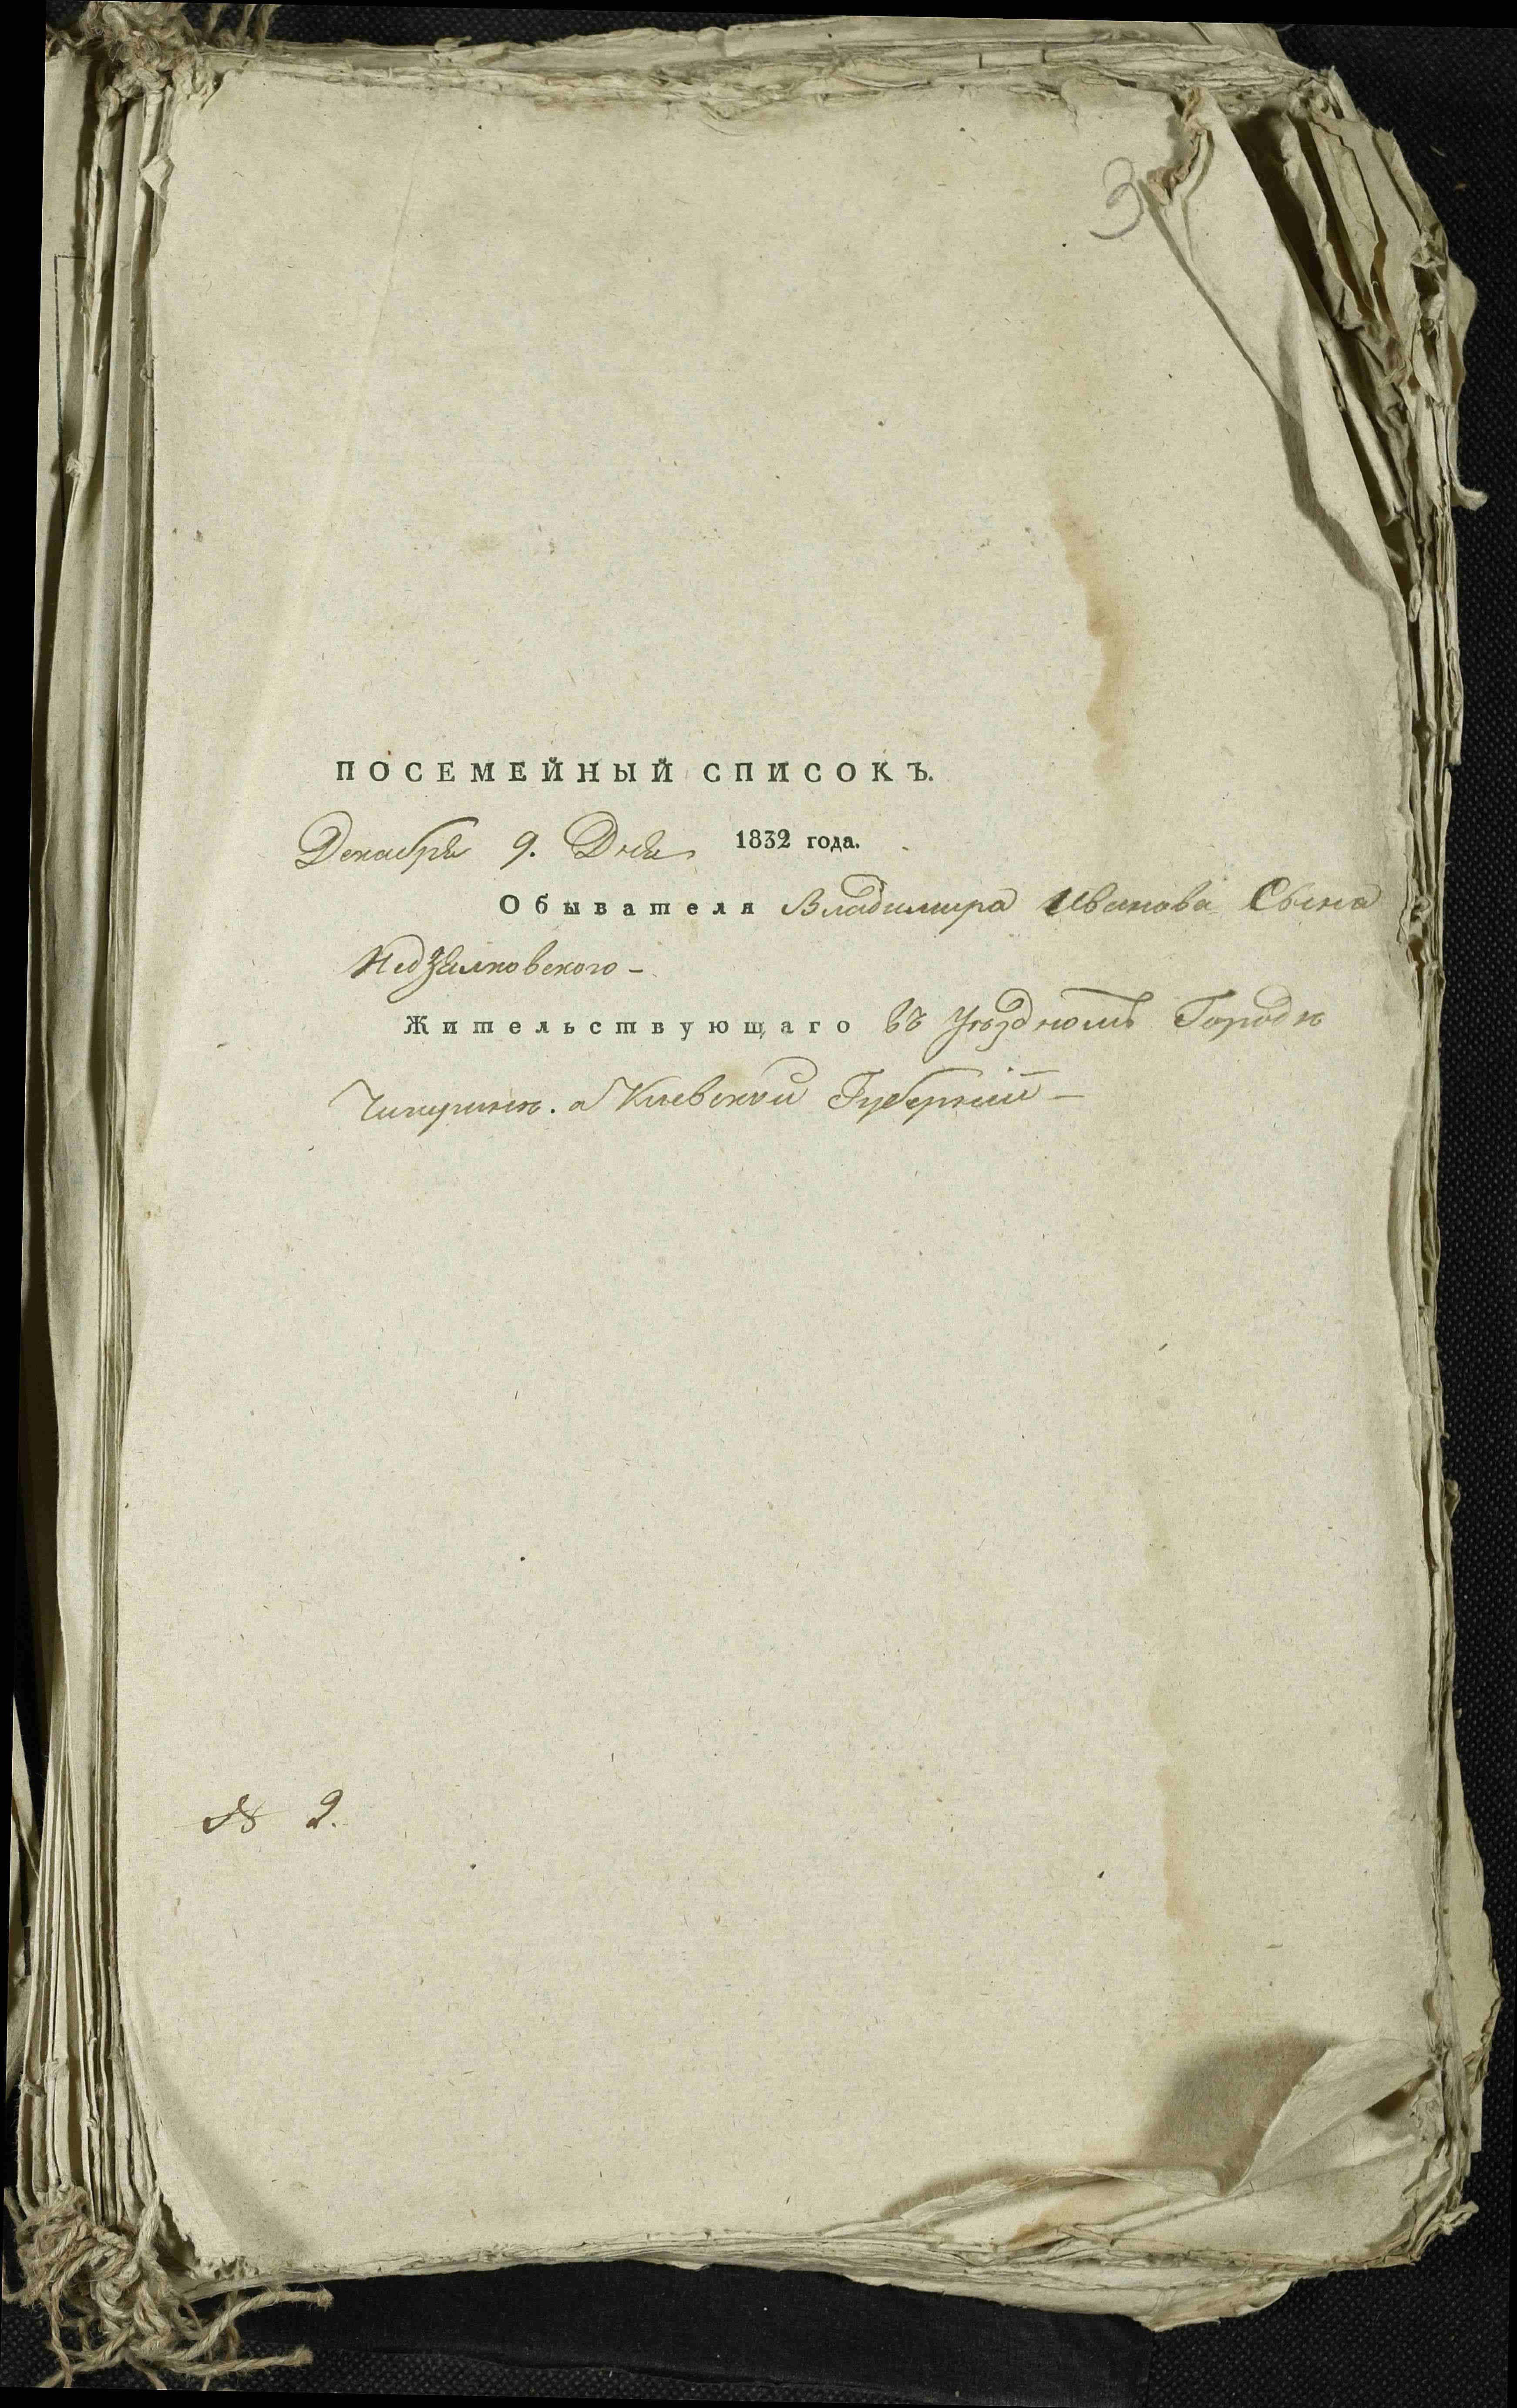 3
ПОСЕМЕЙНЫЙ СПИСОКЪ.
Декабря 9. Дня 1832 года.
Обывателя Владимира Иванова Сына
Недзелковского -
Жительствующаго въ уѣздномъ Городѣ
Чигиринѣ. а Киевской Губерніи -
№ 2.